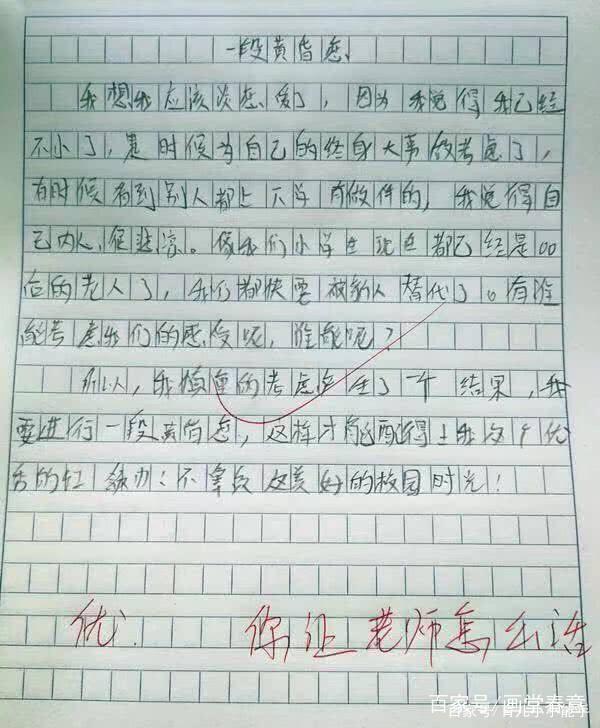 一段黄昏恋
我想我应该谈恋爱了，因为我觉得我已经
不小了，是时候为自己的终身大事做考虑了，
有时候看到别人都上下学有做伴的，我觉得自
己内人很悲凉。像我们小学生现在都已经是00
后的老人了，我们都快要被别人替代了。有谁
能考虑我们的感受呢，谁能呢？
所以，我慎重的考虑产生了一个结果，我
要进行一段黄昏恋，这样才能配得上我这个优
秀的红领巾！不辜负这美好的校园时光！
优 你让老师怎么活
百家号/画堂春意